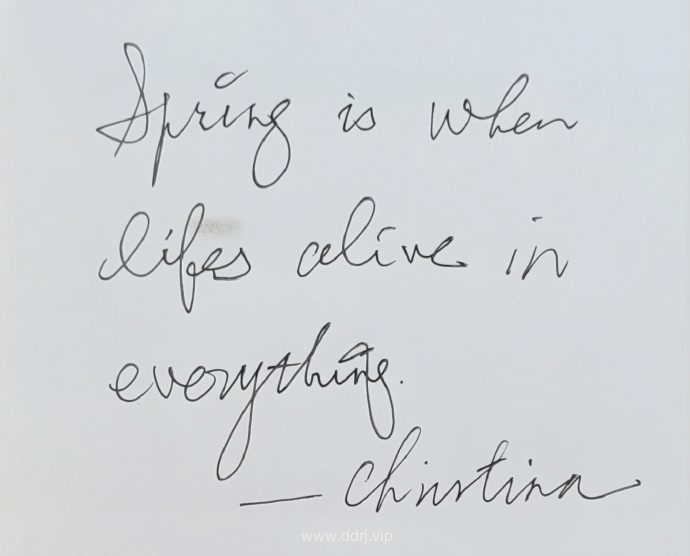 Spring is when
lifes alive in
everything.
— Christina
www.ddrj.vip